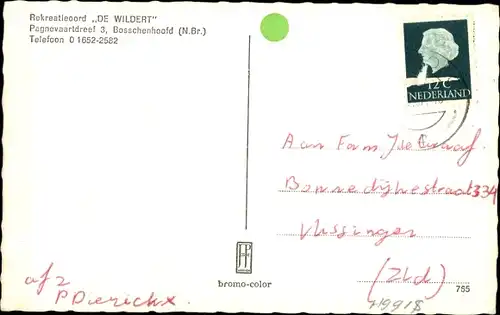 Rekreatieoord „DE WILDERT"
Pagnevaartdreef 3, Bosschenhoofd (N.Br.)
Telefoon 01652-2582
12 C
NEDERLAND
Aan Fam
334
Vlissingen
(Zld)
afz
P Dierickx
bromo-color
755